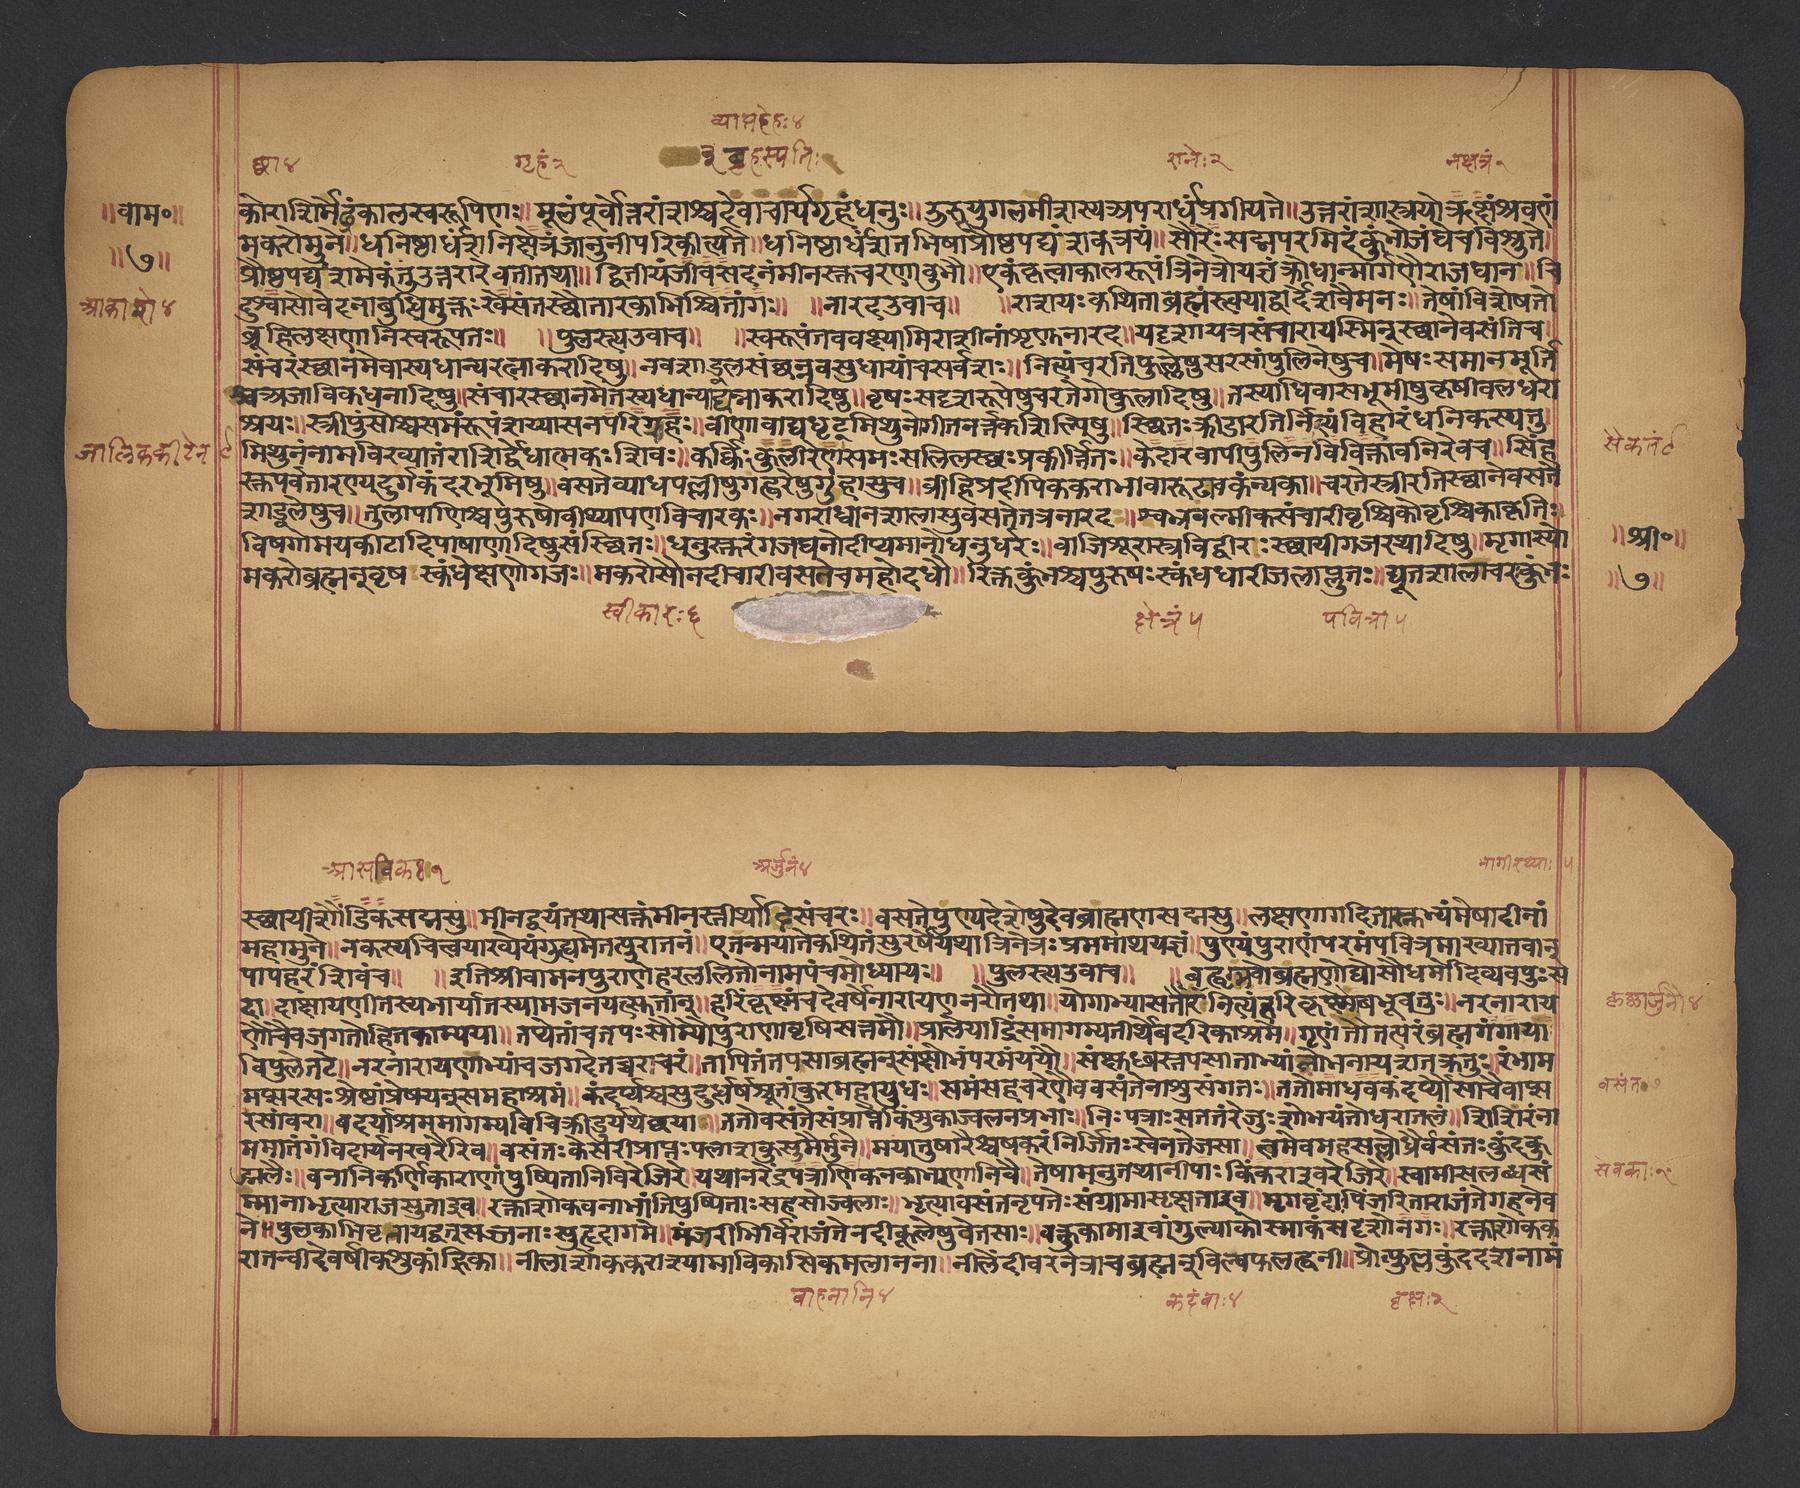 व्याप्तदेहः४
द्वा४ गृहं२ बृहस्पतिः शनेः२ नक्षत्रं२
॥वाम॰॥
॥७॥
कोराशिर्मेढ्रंकालस्वरूपिणः॥मूलंपूर्वोत्तरांशश्चदेवाचार्यगृहंधनुः॥ऊरूयुगलमीशस्यअपरार्धंप्रगीयते॥उत्तरांशास्त्रयोऋक्षंश्रवणं
मकरोमुने॥धनिष्ठार्धंशनिक्षेत्रंजानुनीपरिकीर्त्यते॥धनिष्ठार्धंशतभिषाप्रौष्ठपद्यंशकत्रयं॥सौरेःसद्मापरमिदंकुंभोजंघेचविश्रुते॥
प्रौष्ठपद्यंशमेकंतुउत्तरारेवतीतथा॥द्वितीयंजीवसदनंमीनस्तुचरणावुभौ॥एवंकृत्वाकालरूपंत्रिनेत्रोयज्ञंक्रोधान्मार्गणैराजघान॥वि
आकाशे४
द्धश्चासौवेदनाबुद्धिमुक्तःखेसंतस्थौतारकाभिश्चितांगः॥ ॥नारदउवाच॥ ॥राशयःकथिताब्रह्मंस्त्वयाद्वादशवैमनः॥तेषांविशेषतो
ब्रूहिलक्षणानिस्वरूपतः॥ ॥पुलस्त्यउवाच॥ ॥स्वरूपंतववक्ष्यामिराशीनांशृणुनारद॥यदृशायत्रसंचारायस्मिन्स्थानेवसंतिच
संचरस्थानमेवास्यधान्यरत्नाकरादिषु॥नवशाड्वलसंछन्नवसुधायांचसर्वशः॥नित्यंचरतिफुल्लेषुसरसांपुलिनेषुच॥मेषःसमानमूर्ति
श्चअजाविकधनादिषु॥संचारस्थानमेतस्यधान्यरत्नाकरादिषु॥वृषःसदृशरूपेषुचरतेगोकुलादिषु॥तस्याधिवासभूमीषुकृषीवलधरा
श्रयः॥स्त्रीपुंसोश्चसमंरूपंशय्यासनपरिग्रहः॥वीणावाद्यधृङ्मिथुनंगीतनर्त्तकशिल्पिषु॥स्थितःक्रीडारतिर्नित्यंविहारंधनिकस्यतु
मिथुनंनामविख्यातंराशिर्द्वेधात्मकःशिवः॥कर्किःकुलीरेणसमःसलिलस्थःप्रकीर्त्तितः॥केदारवापीपुलिनेविविक्तावनिरेवच॥सिंह
सैकतं८
स्तुपर्वतारण्यदुर्गकंदरभूमिषु॥वसतेव्याधपल्लीषुगह्वरेषुगुहासुच॥व्रीहिप्रदीपिककराभावारूढाचकन्यका॥चरतेस्त्रीरतिस्थानेवसते
शाड्वलेषुच॥तुलापाणिश्चपुरुषोवीथ्यापणविचारकः॥नगराध्वानशालासुवसतेतत्रनारद॥श्वभ्रवल्मीकसंचारीवृश्चिकोवृश्चिकाकृतिः
विषगोमयकीटादिपाषाणादिषुसंस्थितः॥धनुस्तुरंगजघनोदीप्यमानोधनुर्धरः॥वाजिशूरास्त्रविद्वीरःस्थायीगजरथादिषु॥मृगास्यो
॥श्री॰॥
मकरोब्रह्मन्वृषस्कंधेक्षणोगजः॥मकरोसौनदीचारीवसतेचमहोदधौ॥रिक्तकुंभश्चपुरुषःस्कंधधारीजलाप्लुतः॥द्यूतशालाचरःकुंभः
॥७॥
स्वीकारः६ क्षेत्रं५ पवित्रा५
आसविकः१ अर्जुनं४ भागीरथ्याः५
स्थायीशौंडिकसद्मसु॥मीनद्वयंतथासक्तंमीनस्तीर्थाब्धिसंचरः॥वसतेपुण्यदेशेषुदेवब्राह्मणसद्मसु॥लक्षणागदितास्तुभ्यंमेषादीनां
महामुने॥नकस्यचित्त्वयाख्येयंगुह्यमेतत्पुरातनं॥एतन्मयातेकथितंसुरर्षेयथात्रिनेत्रःप्रममाथयज्ञं॥पुण्यंपुराणंपरमंपवित्रमाख्यातवान्
पापहरंशिवंच॥ ॥इतिश्रीवामनपुराणेहरललितोनामपंचमोध्यायः॥ ॥पुलस्त्यउवाच॥ ॥हृद्भवोब्रह्मणोयोसौधर्मोदिव्यवपुःस
दा॥दाक्षायणीतस्यभार्यातस्यामजनयत्सुतान्॥हरिंकृष्णंचदेवर्षेनारायणनरौतथा॥योगाभ्यासरतौनित्यंहरिकृष्णौबभूवतुः॥नरनाराय
कृष्णार्जुनौ४
णौचैवजगतोहितकाम्यया॥तप्येतांचतपःसौम्यौपुराणावृषिसत्तमौ॥प्रालेयाद्रिंसमागम्यतीर्थेबदरिकाश्रमे॥गृणंतौतत्परंब्रह्मगंगाया
विपुलेतटे॥नरनारायणाभ्यांचजगदेतच्चराचरं॥तापितंतपसाब्रह्मन्संक्षोभंपरमंययौ॥संक्षुब्धस्तपसाताभ्यांक्षोभनायशतक्रतुः॥रंभाम
प्सरसःश्रेष्ठांप्रेषयत्समहाश्रमं॥कंदर्पश्चसुदुर्धर्षश्चूतांकुरमहायुधः॥समंसहचरेणैववसंतेनाशुसंगतः॥ततोमाधवकंदर्पौसाचैवाप्स
वसंतः७
रसांवरा॥बदर्याश्रममागम्यविचिक्रीडुर्यथेच्छया॥ततोवसंतेसंप्राप्तेकिंशुकाज्वलनप्रभाः॥निःपत्राःसततंरेजुःशोभयंतोधरातलं॥शिशिरंना
ममातंगंविदार्यनखरैरिव॥वसंतःकेसरीप्राप्तःपलाशकुसुमैर्मुने॥मयातुषारैश्चषकरंनिर्जितःस्वेनतेजसा॥तमेवमहसल्लोध्रैर्वसंतःकुंदकु
सेवकाः१०
ड्मलैः॥वनानिकर्णिकाराणांपुष्पितानिविरेजिरे॥यथानरेंद्रपत्राणिकनकाभरणानिवै॥तेषामनुतथानीपाःकिंकराइवरेजिरे॥स्वामीसलब्धसं
म्मानाभृत्याराजसुताइव॥रक्ताशोकवनाभांतिपुष्पिताःसहसोज्वलाः॥भृत्यावसंतनृपतेःसंग्रामासृक्षताइव॥मृगवृंदापिंजरिताराजंतेगहनेव
ने॥पुलकाभिवृतायद्वत्सज्जनाःसुहृदागमे॥मंजरीभिर्विराजंतेनदीकूलेषुवेतसाः॥वक्तुकामाइवांगुल्याकोस्माकंसदृशोनगः॥रक्ताशोकक
रातन्वीदेवर्षीकिंशुकांह्रिका॥नीलाशोककचाश्यामाविकासिकमलानना॥नीलेंदीवरनेत्राचब्रह्मन्बिल्वफलस्तनी॥प्रोत्फुल्लकुंददशनामं
वाहनानि४ कदंबाः४ वृक्षः२